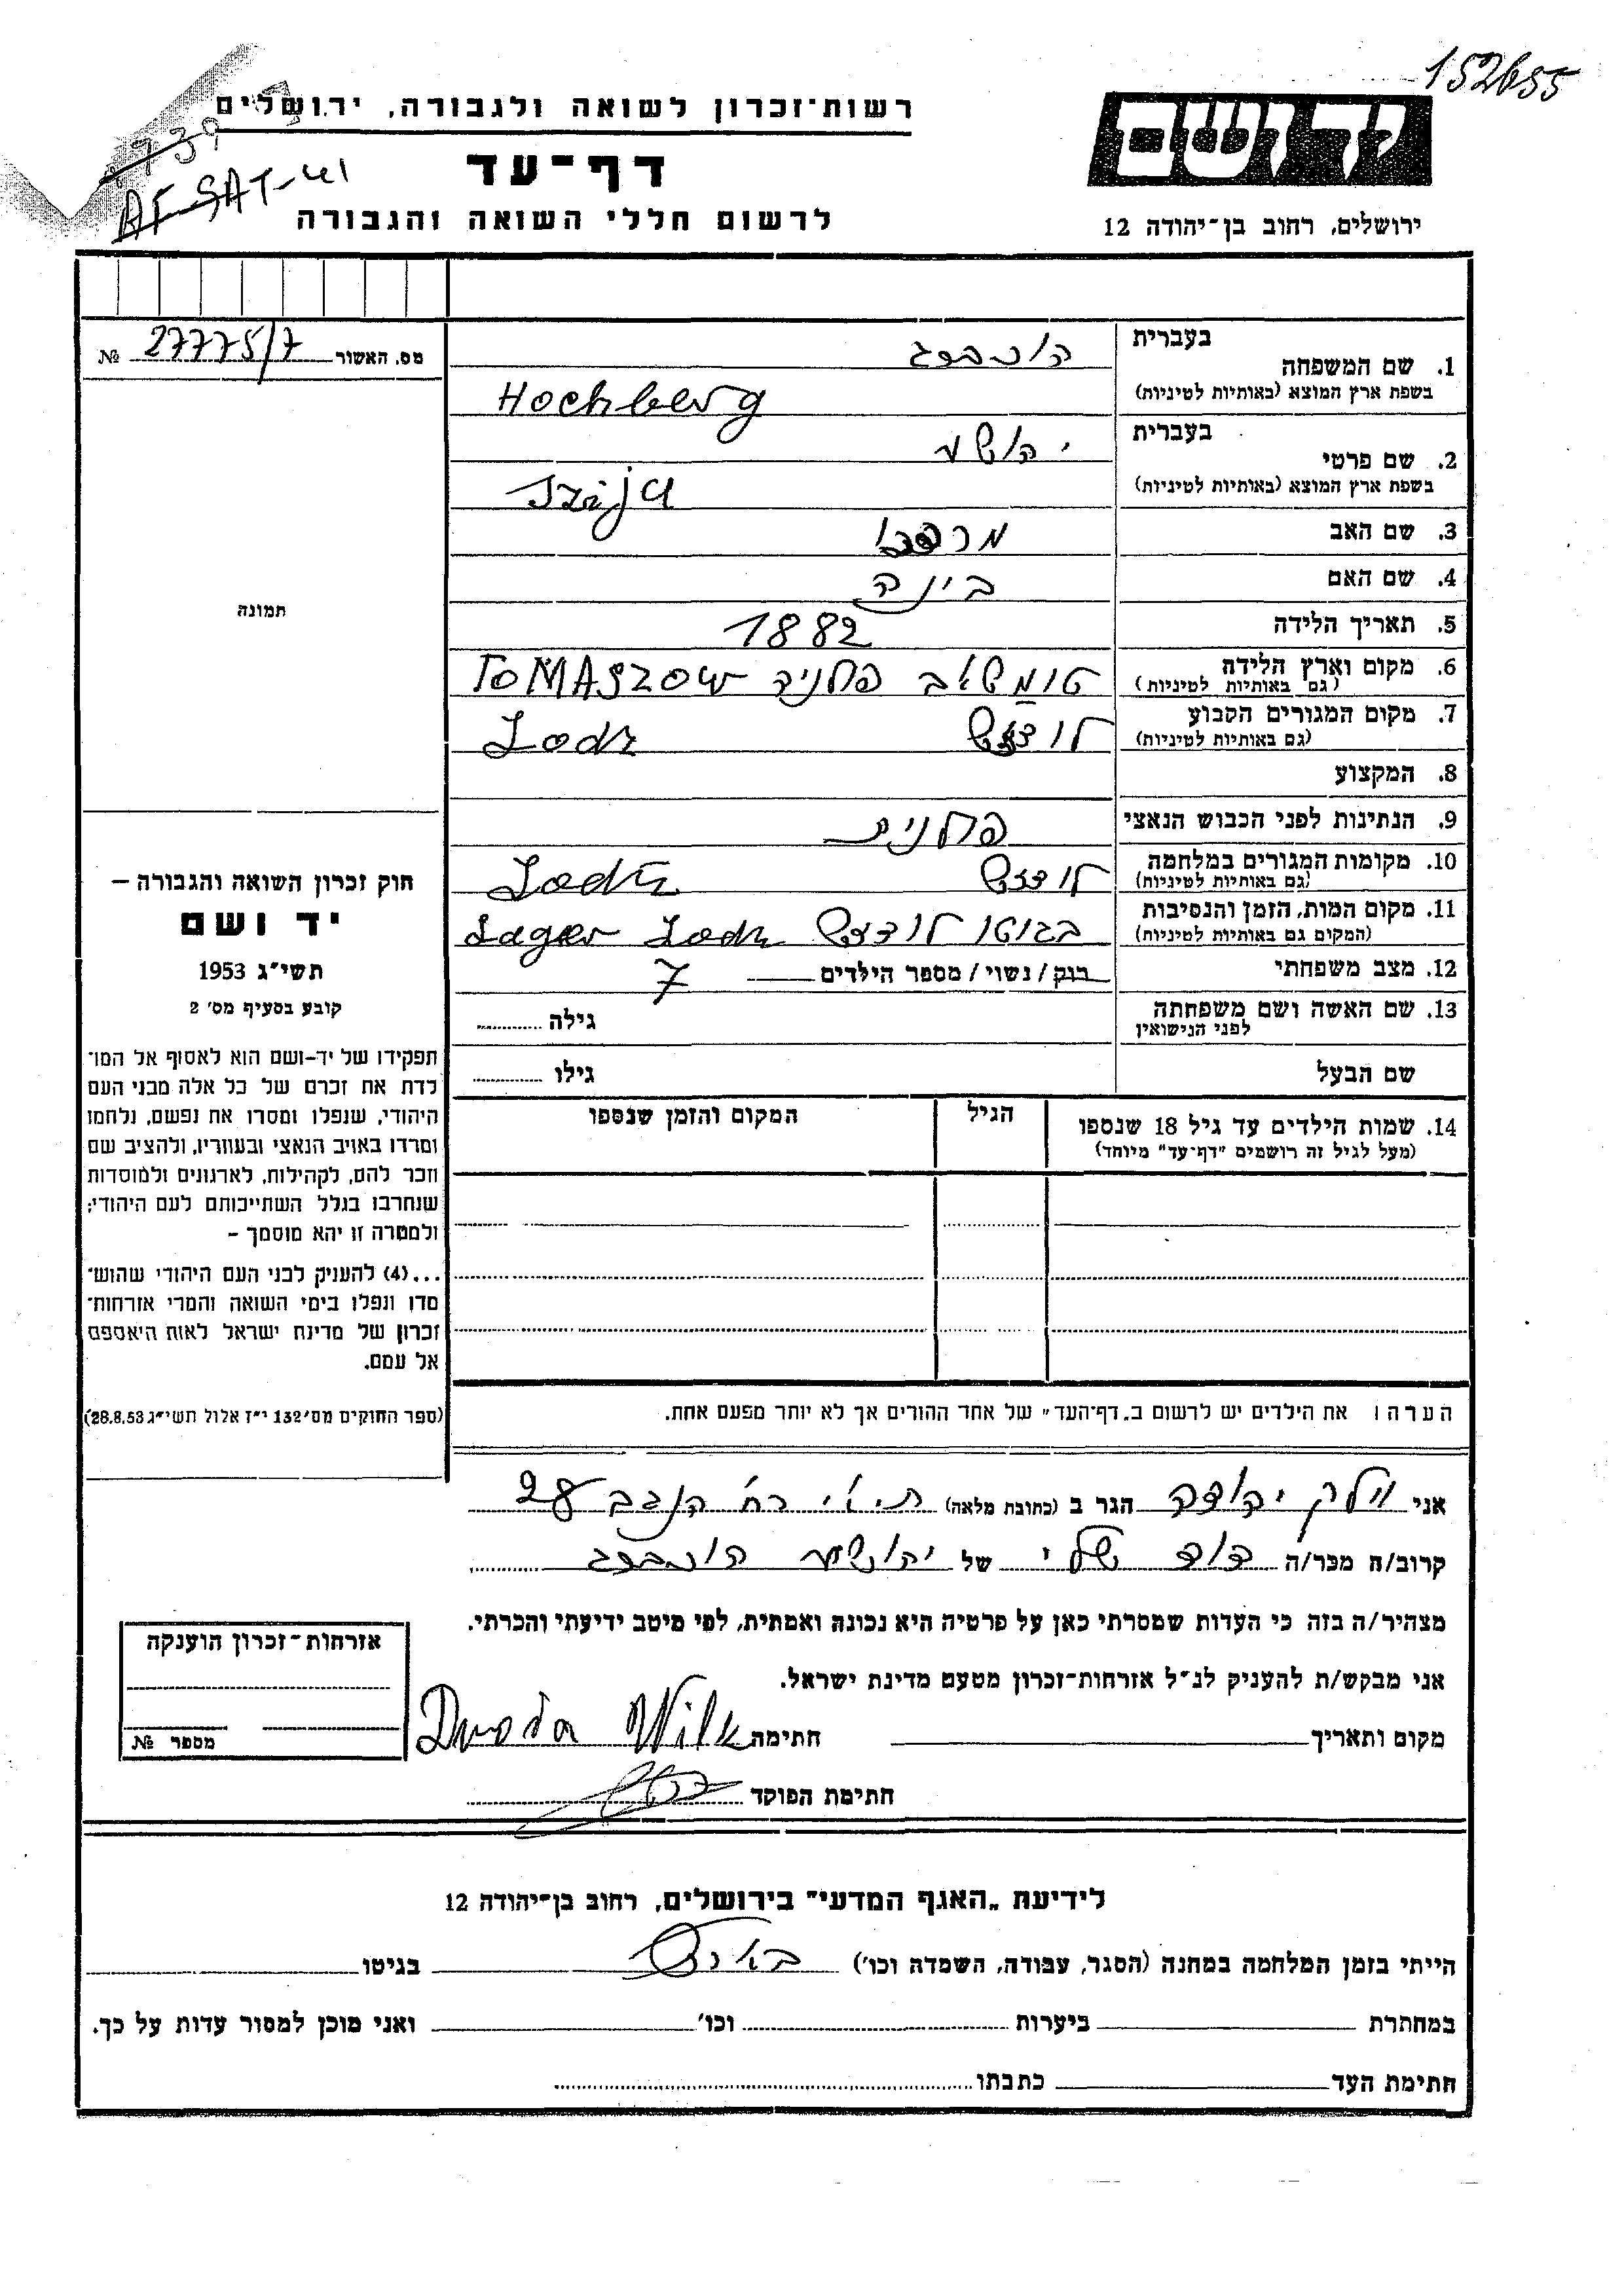 152655
רשות־זכרון לשואה ולגבורה, ירושלים
AF-SAT-41
דף־עד
לרשום חללי השואה והגבורה
יד ושם
ירושלים, רחוב בן־יהודה 12
מס. האשור 27775/7 №
תמונה
חוק זכרון השואה והגבורה –
יד ושם
תשי״ג 1953
קובע בסעיף מס׳ 2
תפקידו של יד-ושם הוא לאסוף אל המו־
לדת את זכרם של כל אלה מבני העם
היהודי, שנפלו ומסרו את נפשם, נלחמו
ומרדו באויב הנאצי ובעוזריו, ולהציב שם
וזכר להם, לקהילות, לארגונים ולמוסדות
שנחרבו בגלל השתייכותם לעם היהודי;
ולמטרה זו יהא מוסמך –
...(4) להעניק לבני העם היהודי שהוש־
מדו ונפלו בימי השואה והמרי אזרחות־
זכרון של מדינת ישראל לאות היאספם
אל עמם.
(ספר החוקים מס׳ 132 י״ז אלול תשי״ג 28.8.53)
1. שם המשפחה
בעברית הוכברג
בשפת ארץ המוצא (באותיות לטיניות) Hochberg
2. שם פרטי
בעברית יהושע
בשפת ארץ המוצא (באותיות לטיניות)
3. שם האב
4. שם האם בינה
5. תאריך הלידה 1882
6. מקום וארץ הלידה
(גם באותיות לטיניות) טומשוב פולניה TOMASZOW
7. מקום המגורים הקבוע
(גם באותיות לטיניות) לודז׳ Lodz
8. המקצוע
9. הנתינות לפני הכבוש הנאצי פולנית
10. מקומות המגורים במלחמה
(גם באותיות לטיניות) Lodz
11. מקום המות, הזמן והנסיבות
(המקום גם באותיות לטיניות) בגיטו Lager Lodz
12. מצב משפחתי רוק / נשוי / מספר הילדים 7
13. שם האשה ושם משפחתה
לפני הנישואין
גילה
שם הבעל גילו
14. שמות הילדים עד גיל 18 שנספו
(מעל לגיל זה רושמים ״דף־עד״ מיוחד)
הגיל
המקום והזמן שנספו
הערה: את הילדים יש לרשום ב„דף־העד״ של אחד ההורים אך לא יותר מפעם אחת.
אני וילק יהודה הגר ב (כתובת מלאה) ת״א רח׳ הנגב 28
קרוב/ה מכר/ה דוד שלי של יהושע הוכברג
מצהיר/ה בזה כי העדות שמסרתי כאן על פרטיה היא נכונה ואמתית, לפי מיטב ידיעתי והכרתי.
אני מבקש/ת להעניק לנ״ל אזרחות־זכרון מטעם מדינת ישראל.
מקום ותאריך חתימה Wilk
חתימת הפוקד
אזרחות־זכרון הוענקה
מספר №
לידיעת „האגף המדעי״ בירושלים, רחוב בן־יהודה 12
הייתי בזמן המלחמה במחנה (הסגר, עבודה, השמדה וכו׳) בארץ בגיטו
במחתרת ביערות וכו׳ ואני מוכן למסור עדות על כך.
חתימת העד כתבתו